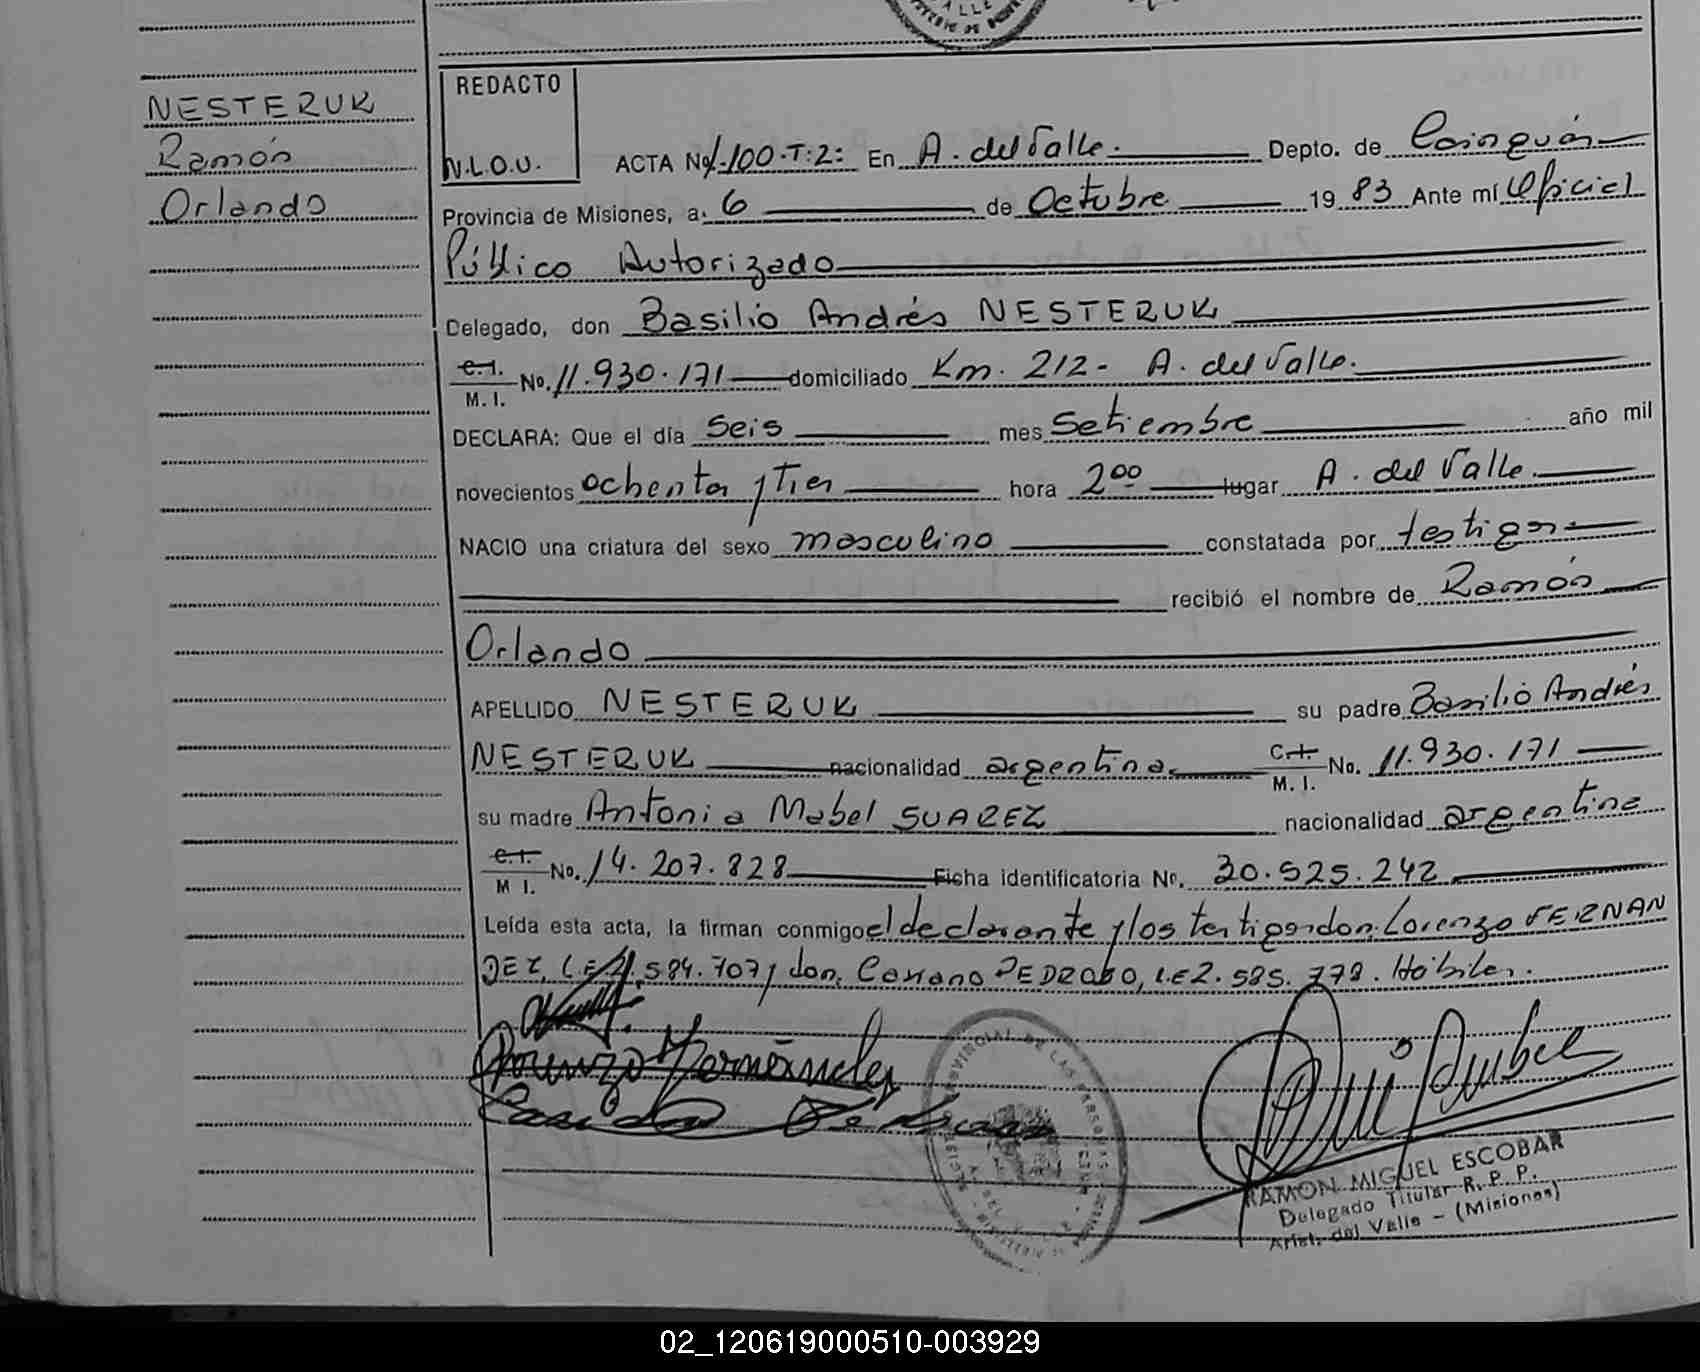 NESTERUK
Ramón
Orlando
REDACTO
N.L.O.U.
ACTA No/-100-T:2: En A. del Valle. Depto. de Cainguás
Provincia de Misiones, a. 6 de Octubre 19 83 Ante mí Oficial
Público Autorizado
Delegado, don Basilio Andrés NESTERUK
C.I. M. I. No. 11.930.171 domiciliado Km. 212- A. del Valle.
DECLARA: Que el día seis mes setiembre año mil
novecientos ochenta y Tres hora 2⁰⁰ lugar A. del Valle.
NACIO una criatura del sexo masculino constatada por testigos
recibió el nombre de Ramón
Orlando
APELLIDO NESTERUK su padre Basilio Andrés
NESTERUK nacionalidad argentina C.I. M. I. No. 11.930.171
su madre Antonia Mabel SUAREZ nacionalidad argentina
C.I. M I. No. 14.207.828 Ficha identificatoria No. 30.525.242
Leída esta acta, la firman conmigo el declarante y los testigos don. Lorenzo FERNAN
DEZ, L.E. .584.707 y don. PEDROZO, L.E 2.585.778. Hábiles.
Lorenzo Fernández
RAMON MIGUEL ESCOBAR
Delegado Titular R. P. P.
Arist. del Valle - (Misiones)
02_120619000510-003929